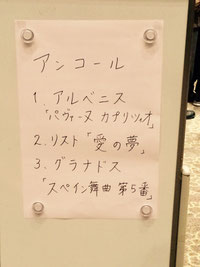 アンコール
1. アルベニス
「パヴァーヌ カプリツィオ」
2. リスト「愛の夢」
3. グラナドス
「スペイン舞曲 第5番」